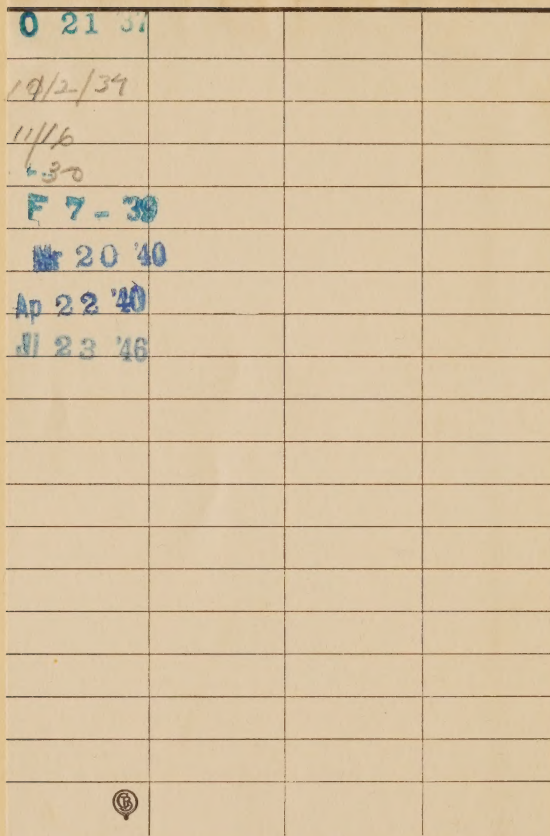 O 21 '37
11/16
-30
F 7 - 39
Mr 20 '40
Ap 22 '40
Jl 23 '46